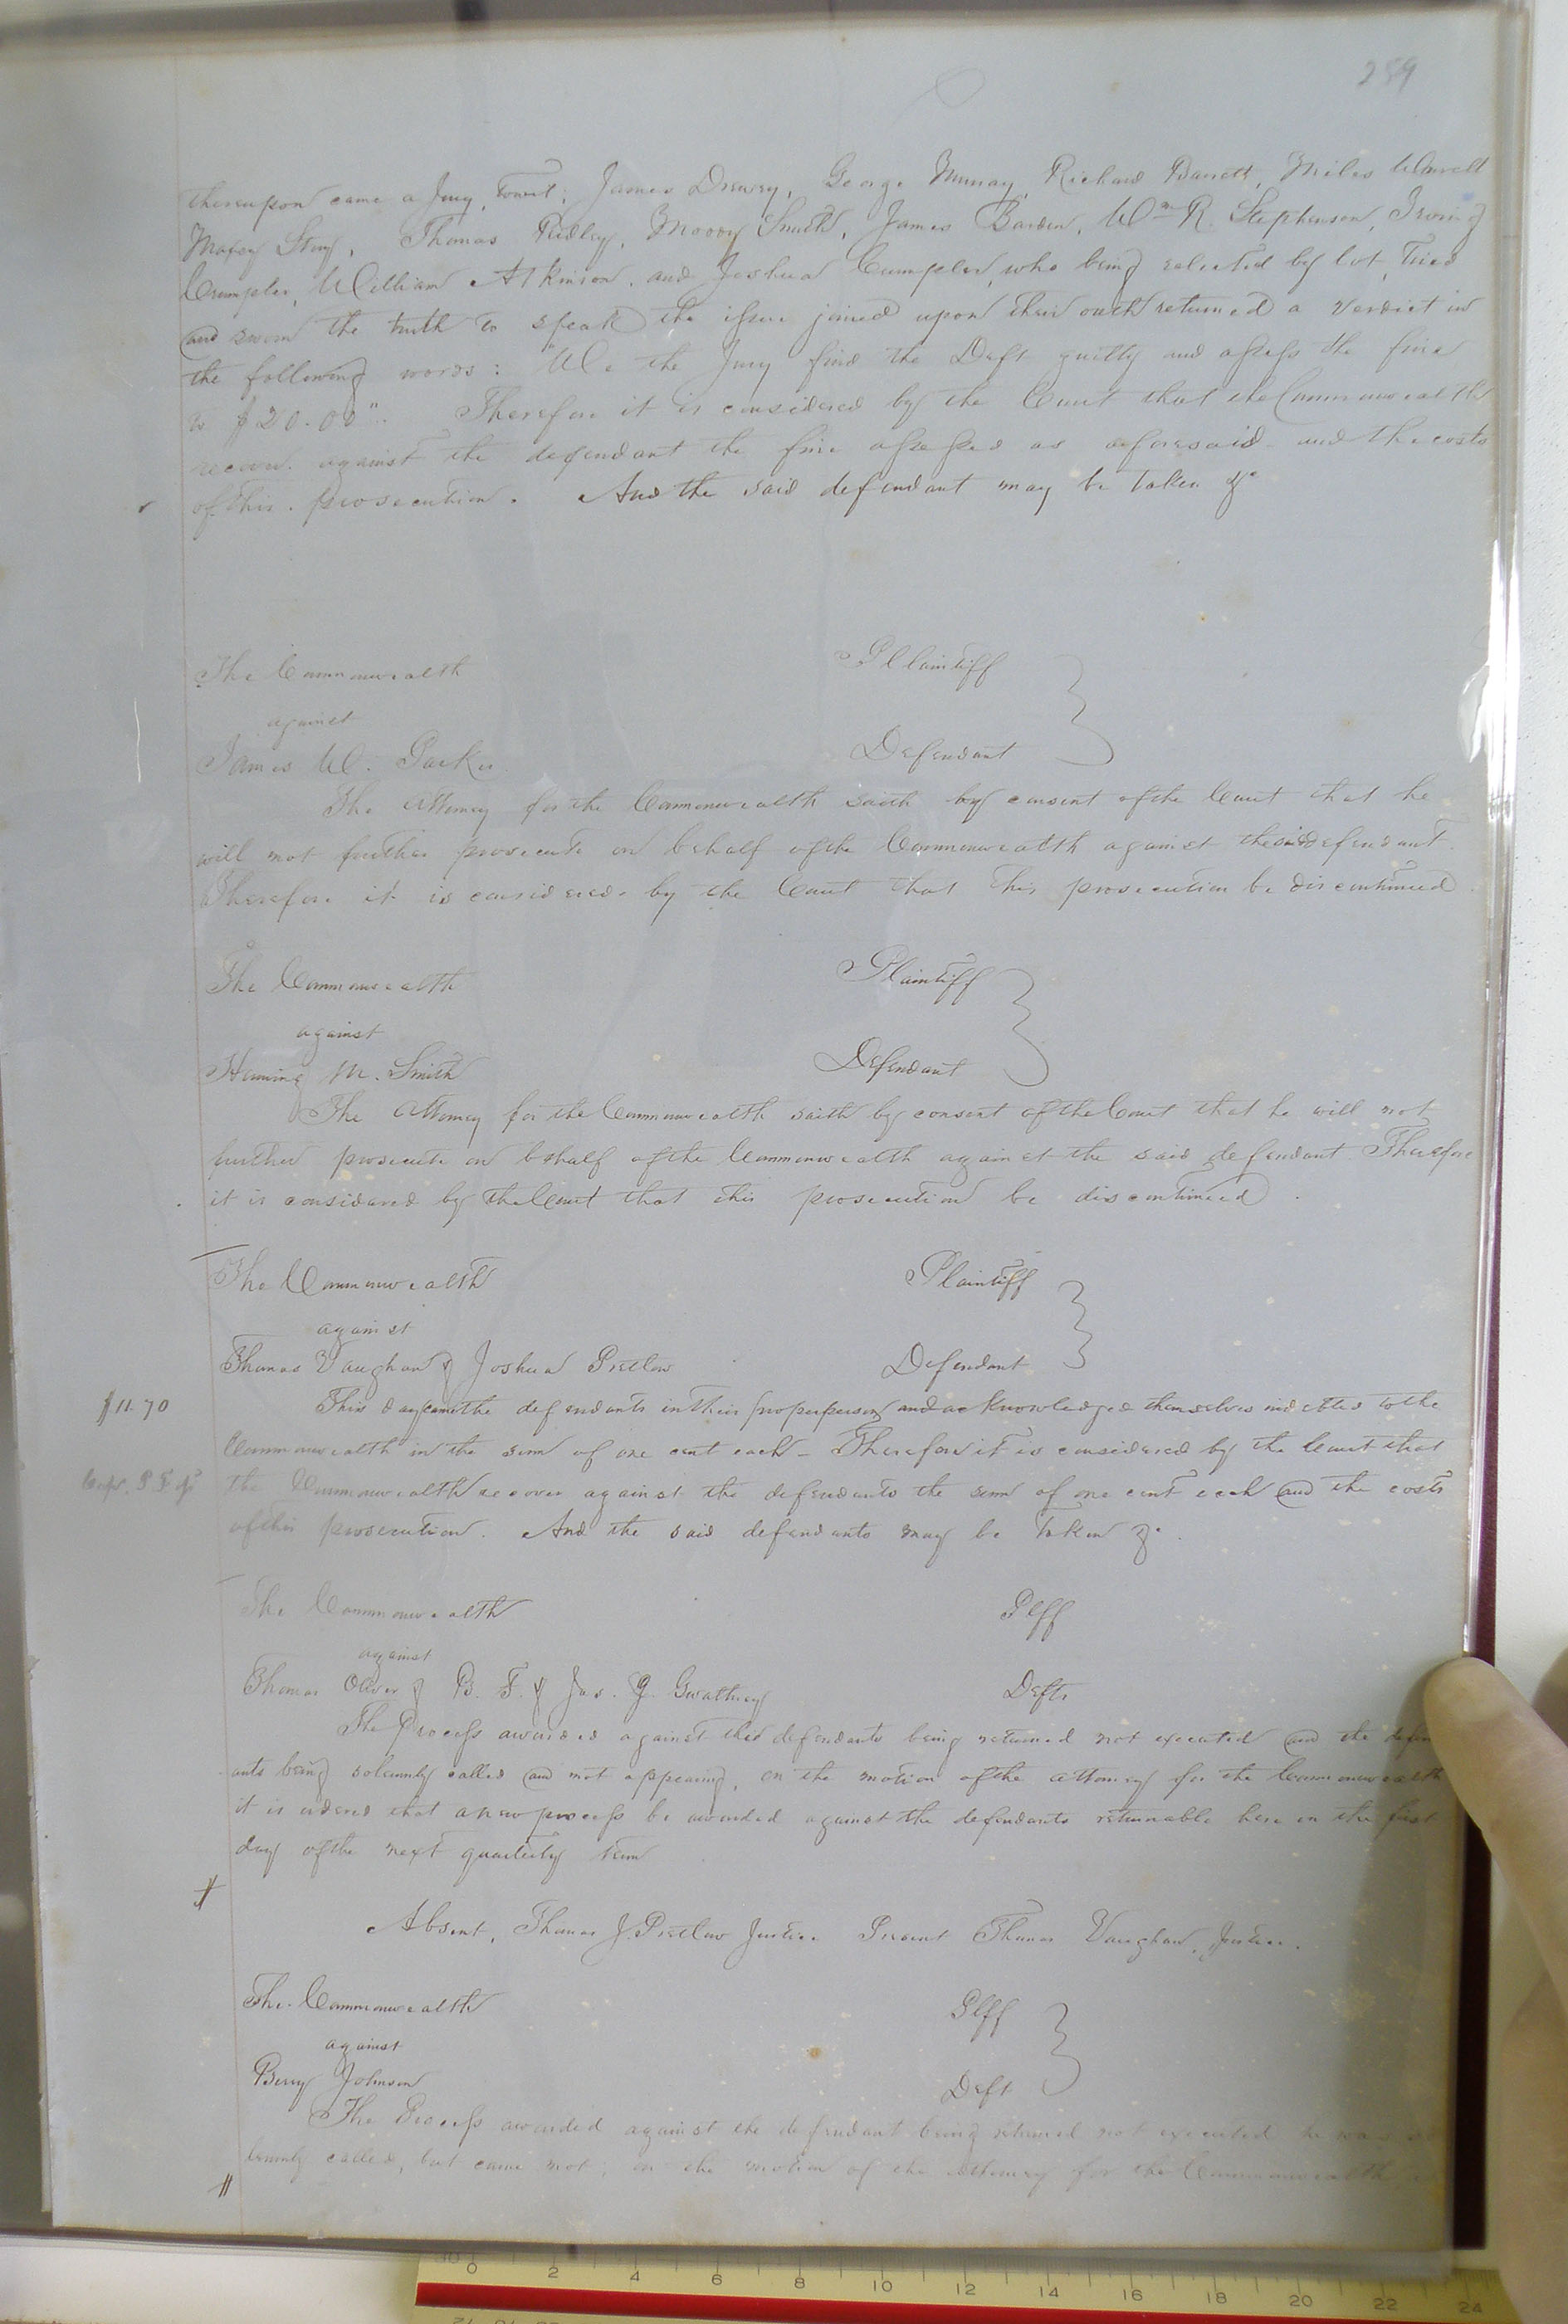 259
thereupon came a Jury, towit; James Drewry, George Murray, Richard Barrett, Miles Worrell
Story, Thomas Ridley, Moody Smith, James Barden, Wm R. Stephenson, Irving
Crumpler, William Atkinson, and Joshua Crumpler, who being selected by lot, tried
and sworn the truth to speak the issue joined upon their oath returned a verdict in
the following words: "We the Jury find the Deft guilty and assess the fine
to $20.00". Therefore it is considered by the Court that the Commonwealth
recover against the defendant the fine assessed as aforesaid and the costs
of this prosecution. And the said defendant may be taken &c
The Commonwealth Plaintiff
against
James W. Parker Defendant
The Attorney for the Commonwealth saith by consent of the Court that he
will not further prosecute on behalf of the Commonwealth against the said defendant.
Therefore it is considered by the Court that this prosecution be discontinued
The Commonwealth Plaintiff
against
M. Smith Defendant
The Attorney for the Commonwealth saith by consent of the Court that he will not
further prosecute on behalf of the Commonwealth against the said defendant. Therefore
it is considered by the Court that this prosecution be discontinued.
The Commonwealth Plaintiff
against
Thomas Vaughan & Joshua Pretlow Defendant
$11.70 This day came the defendants in their proper person and acknowledged themselves indebted to the
Commonwealth in the sum of one cent each - Therefore it is considered by the Court that
the Commonwealth recover against the defendants the sum of one cent each and the costs
of this prosecution. And the said defendants may be taken &c.
The Commonwealth Plff
against
Thomas Oliver & B. F. & Jas. G. Gwathney Defts
The Process awarded against the defendants being returned not executed and the defend
ants being solemnly called and not appearing, on the motion of the attorney for the Commonwealth
it is ordered that a new process be awarded against the defendants returnable here on the first
day of the next quarterly term
Absent, Thomas J. Pretlow Justice Present Thomas Vaughan, Justice.
The Commonwealth Plff
against
Berry Johnson Deft
The Process awarded against the defendant being returned not executed he was so
lemnly called, but came not; on the motion of the attorney for the Commonwealth
0 2 4 6 8 10 12 14 16 18 20 22 24